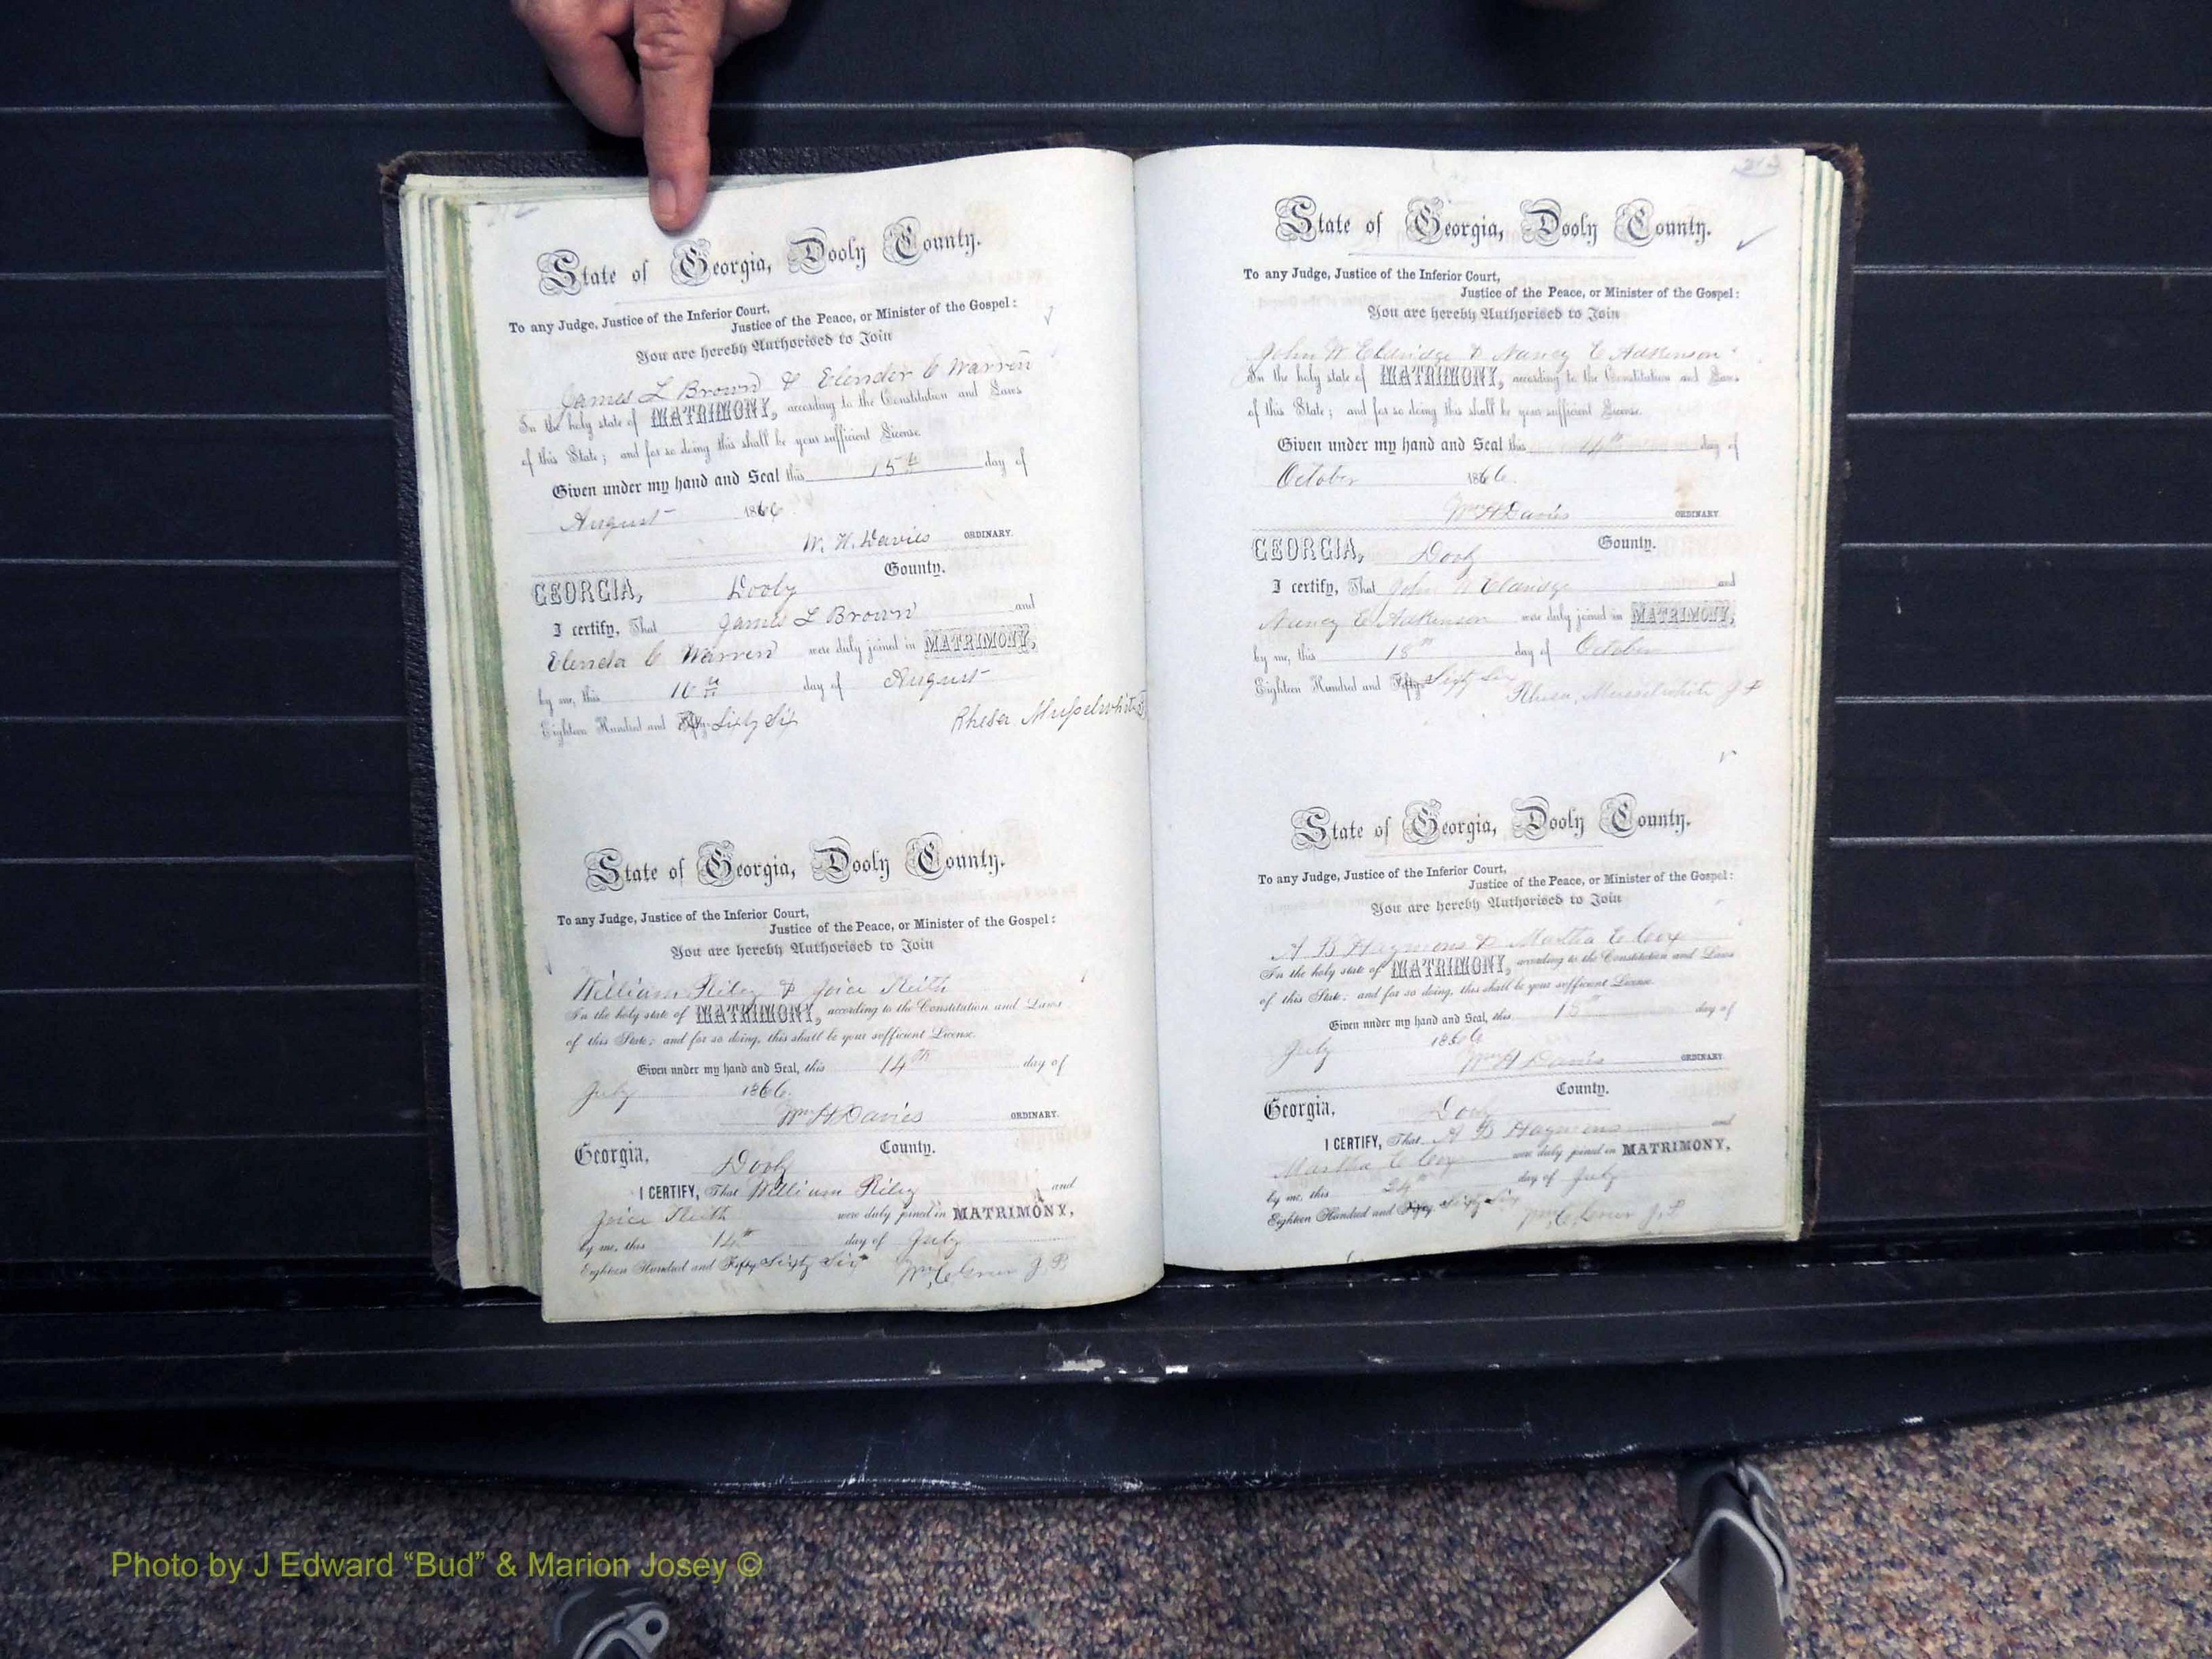 State of Georgia, Dooly County.
To any Judge, Justice of the Inferior Court,
Justice of the Peace, or Minister of the Gospel:
You are hereby Authorised to Join
James L Brown & Elender C Warren
In the holy state of MATRIMONY, according to the Constitution and Laws
of this State; and for so doing this shall be your sufficient License.
Given under my hand and Seal this 15th day of
August 1866
W. H. Davies ORDINARY.
GEORGIA, Dooly County.
I certify, That James L Brown and
Elenda C Warren were duly joined in MATRIMONY,
by me, this 16th day of August
Eighteen Hundred and Fifty Sixty Six Rhesa Musselwhite
State of Georgia, Dooly County.
To any Judge, Justice of the Inferior Court,
Justice of the Peace, or Minister of the Gospel:
You are hereby Authorised to Join
William Riley & Joice Keith
In the holy state of MATRIMONY, according to the Constitution and Laws
of this State; and for so doing, this shall be your sufficient License.
Given under my hand and Seal, this 14th day of
July 1866.
Wm H Davies ORDINARY.
Georgia, Dooly County.
I CERTIFY, That William Riley and
Joice Keith were duly joined in MATRIMONY,
by me, this 14th day of July
Eighteen Hundred and Fifty Sixty Six Wm J. P.
213
State of Georgia, Dooly County.
To any Judge, Justice of the Inferior Court,
Justice of the Peace, or Minister of the Gospel:
You are hereby Authorised to Join
John W Eldridge & Nancy E Adkenson
In the holy state of MATRIMONY, according to the Constitution and Laws
of this State; and for so doing this shall be your sufficient License.
Given under my hand and Seal this day of
October 1866.
Wm H Davies ORDINARY.
GEORGIA, Dooly County.
I certify, That John W Eldridge and
Nancy E Adkenson were duly joined in MATRIMONY,
by me, this 18th day of October
Eighteen Hundred and Fifty Sixty Six Rhesa Musselwhite J P
State of Georgia, Dooly County.
To any Judge, Justice of the Inferior Court,
Justice of the Peace, or Minister of the Gospel:
You are hereby Authorised to Join
A B Haymons & Martha E Cox
In the holy state of MATRIMONY, according to the Constitution and Laws
of this State; and for so doing, this shall be your sufficient License.
Given under my hand and Seal, this 18th day of
July 1866
Wm H Davies ORDINARY.
Georgia, Dooly County.
I CERTIFY, That A B Haymons and
Martha E Cox were duly joined in MATRIMONY,
by me, this 24th day of July
Eighteen Hundred and Fifty Sixty Six Wm J. P
Photo by J Edward “Bud” & Marion Josey ©